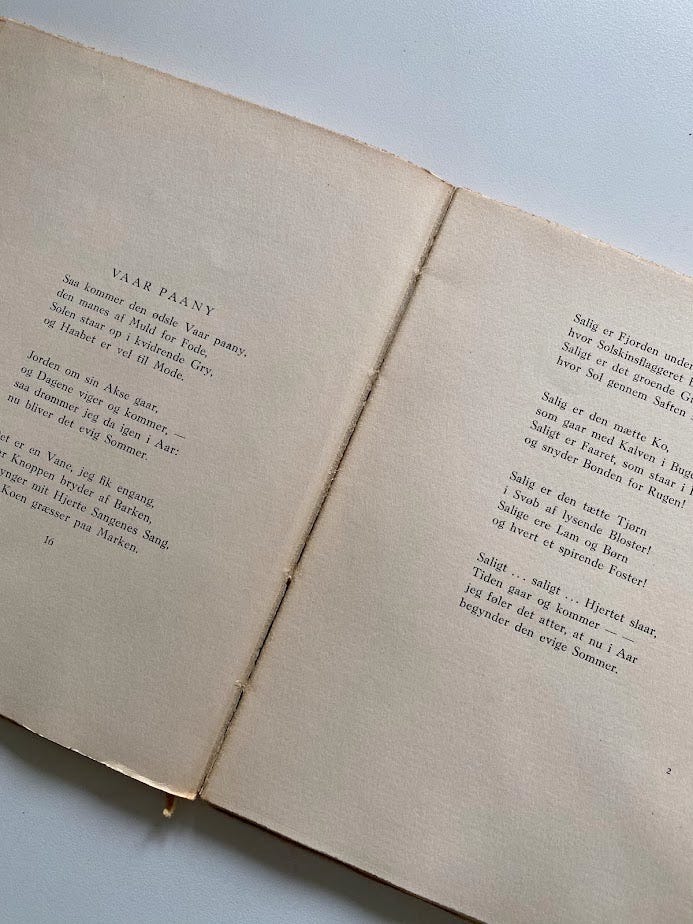 VAAR PAANY
Saa kommer den ødsle Vaar paany,
den manes af Muld for Fode,
Solen staar op i kvidrende Gry,
og Haabet er vel til Mode.
Jorden om sin Akse gaar,
og Dagene viger og kommer, —
saa drømmer jeg da igen i Aar:
nu bliver det evig Sommer.
er en Vane, jeg fik engang,
Knoppen bryder af Barken,
mit Hjerte Sangenes Sang,
Koen græsser paa Marken.
16
Salig er Fjorden under
hvor Solskinsflaggeret
Saligt er det groende
hvor Sol gennem Saften
Salig er den mætte Ko,
som gaar med Kalven i
Saligt er Faaret, som staar i
og snyder Bonden for Rugen!
Salig er den tætte Tjørn
i Svøb af lysende Bloster!
Salige ere Lam og Børn
og hvert et spirende Foster!
Saligt ... saligt ... Hjertet slaar,
Tiden gaar og kommer — —
jeg føler det atter, at nu i Aar
begynder den evige Sommer.
2